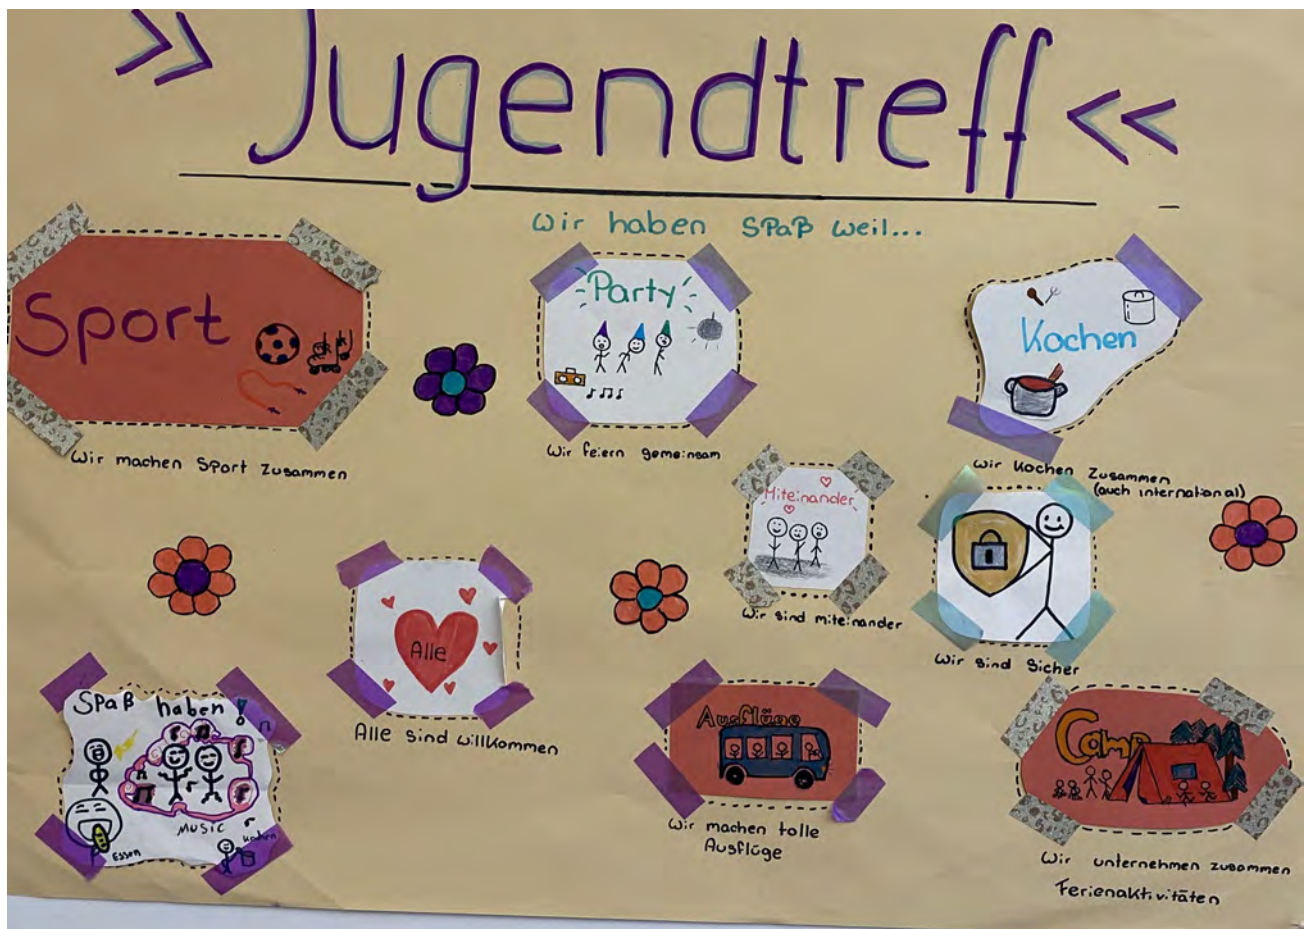 >> Jugendtreff <<
Wir haben SPaß weil...
Sport
Wir machen Sport Zusammen
Party
Wir feiern gemeinsam
Kochen
Wir Kochen Zusammen
(auch international)
Miteinander
Wir sind miteinander
Wir sind Sicher
Alle
Alle sind willkommen
SPaß haben!
MUSIC
Essen
Kochen
Ausflüge
Wir machen tolle
Ausflüge
Camp
Wir unternehmen zusammen
Ferienaktivitäten